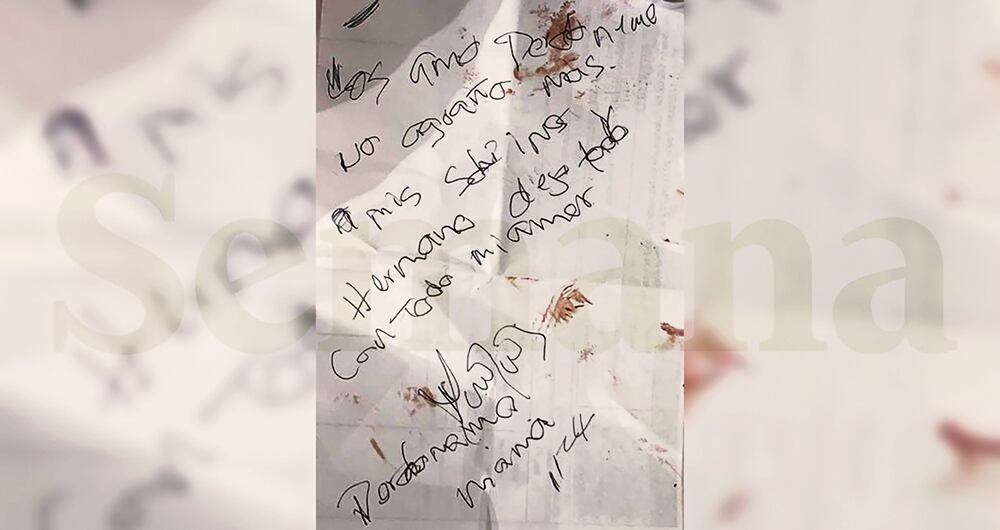 Los amo Perdoneme
no aguanto más.
a mis sobrinos
Hermano dejo todo
Con todo mi amor
Perdoname
mamá
Semana